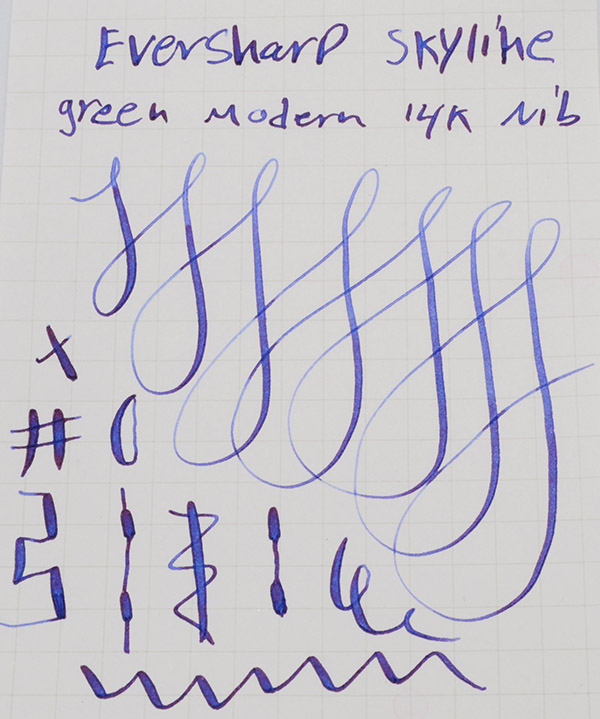 Eversharp Skyline
green modern 14K Nib